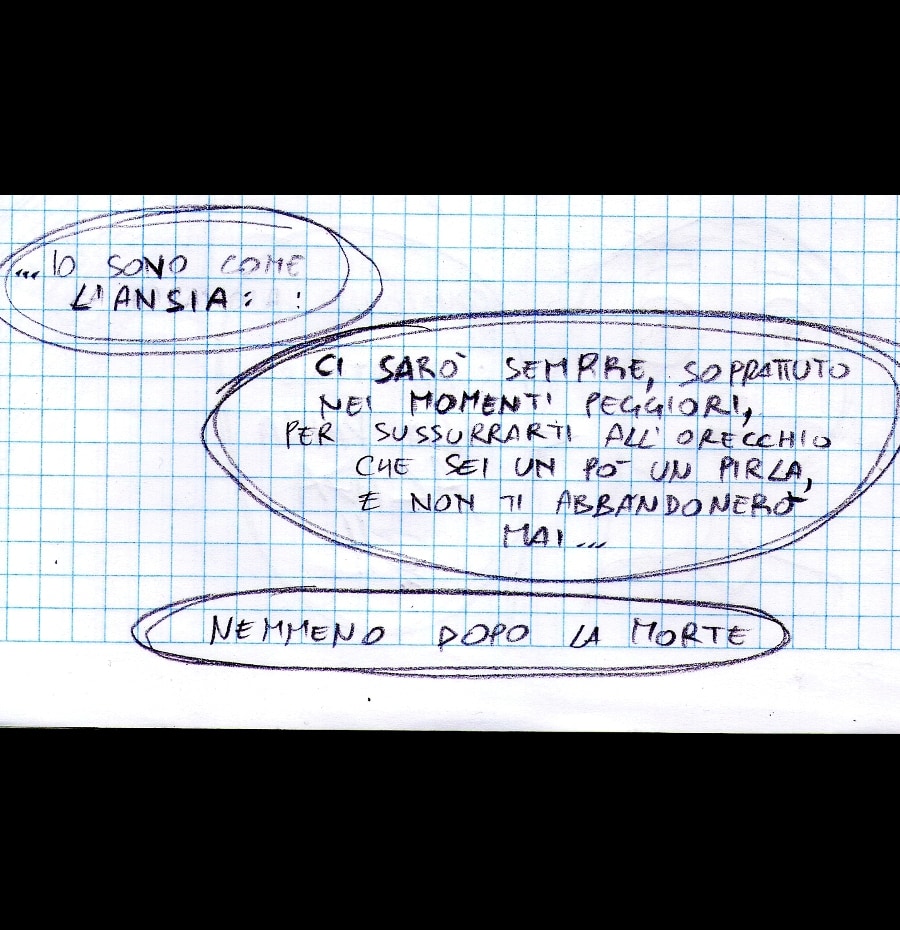 ...IO SONO COME
L'ANSIA: :
CI SARÒ SEMPRE, SOPRATTUTO
NEI MOMENTI PEGGIORI,
PER SUSSURRARTI ALL'ORECCHIO
CHE SEI UN PO' UN PIRLA,
E NON TI ABBANDONERÒ
MAI...
NEMMENO DOPO LA MORTE